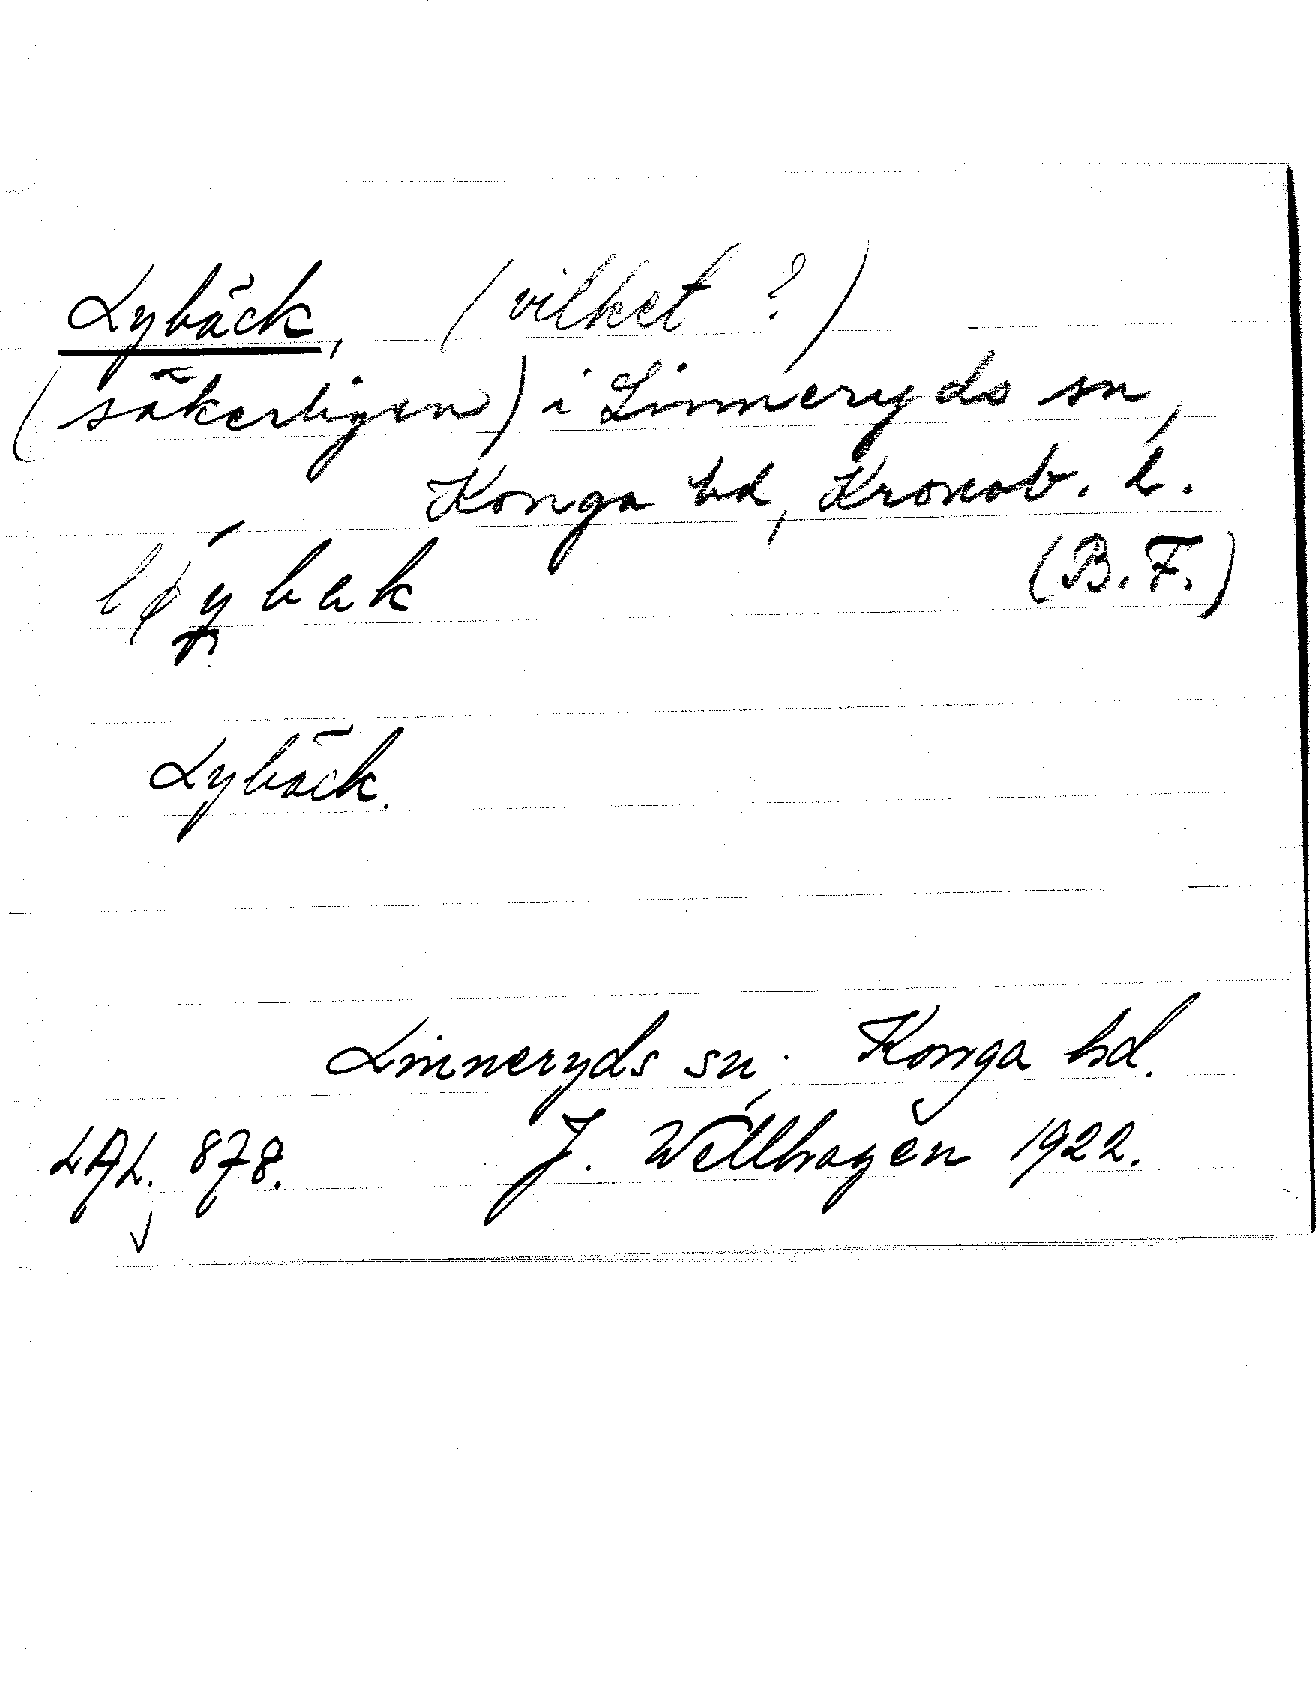 Lybäck, (vilket?)
(säkerligen) i Linneryds sn,
Konga hd, Kronob. l.
(B. F.)
Lybäck.
Linneryds sn, Konga hd.
LAL. 878. J. Wellhagen 1922.